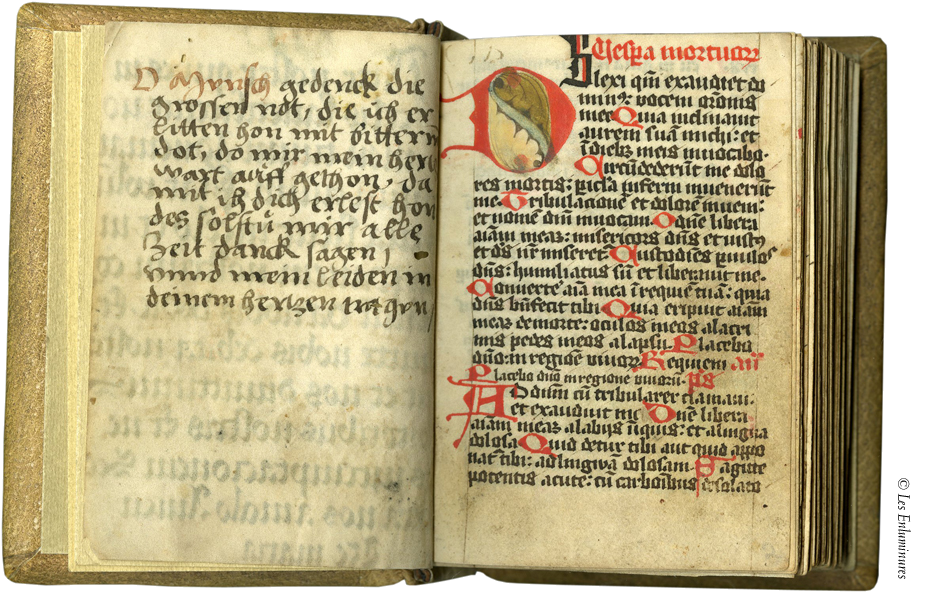 O Mensch gedenck die
grossen not, die ich er
litten hon mit bitterm
dot, do mir mein hertz
wart auff gethon, da
mit ich dich erlest hon
des solstu mir alle
Zeit danck sagen,
unnd mein leiden in
deinem hertzen tragen,
Vespa mortuorꝝ
Dilexi qm̄ exaudiet do
minꝰ vocem oronis
mee Quia inclinavit
aurem suā michi: et
ī diebꝫ meis invocabo.
Circūdederūt me dolo
res mortis: picla inferni invenerūt
me. Tribulacionē et dolorē inveni:
et nomē dni invocavi. O dnē libera
aīam meaꝫ: misericors dn̄s et iustꝰ
et ds nr̄ miseret. Custodiēs pvulos
dn̄s: humiliatus sū et liberavit me.
Convertē aīa mea ī requiē tuā: quia
dn̄s bn̄fecit tibi. Quia eripuit aīam
meaꝫ de morte: oculos meos a lacri
mis pedes meos a lapsu. Placebo
dn̄o: in regione vivorꝝ Requiem añ
Placebo dn̄o in regione vivorū. ps
Ad dn̄m cū tribularer clamavi:
et exaudivit me Dnē libera
aīam meaꝫ a labijs īiquis: et a lingua
dolosa. Quid detur tibi aut quid appo
nat tibi: ad linguā dolosam. Sagitte
potentis acute: cū carbōibus desolato
© Les Enluminures